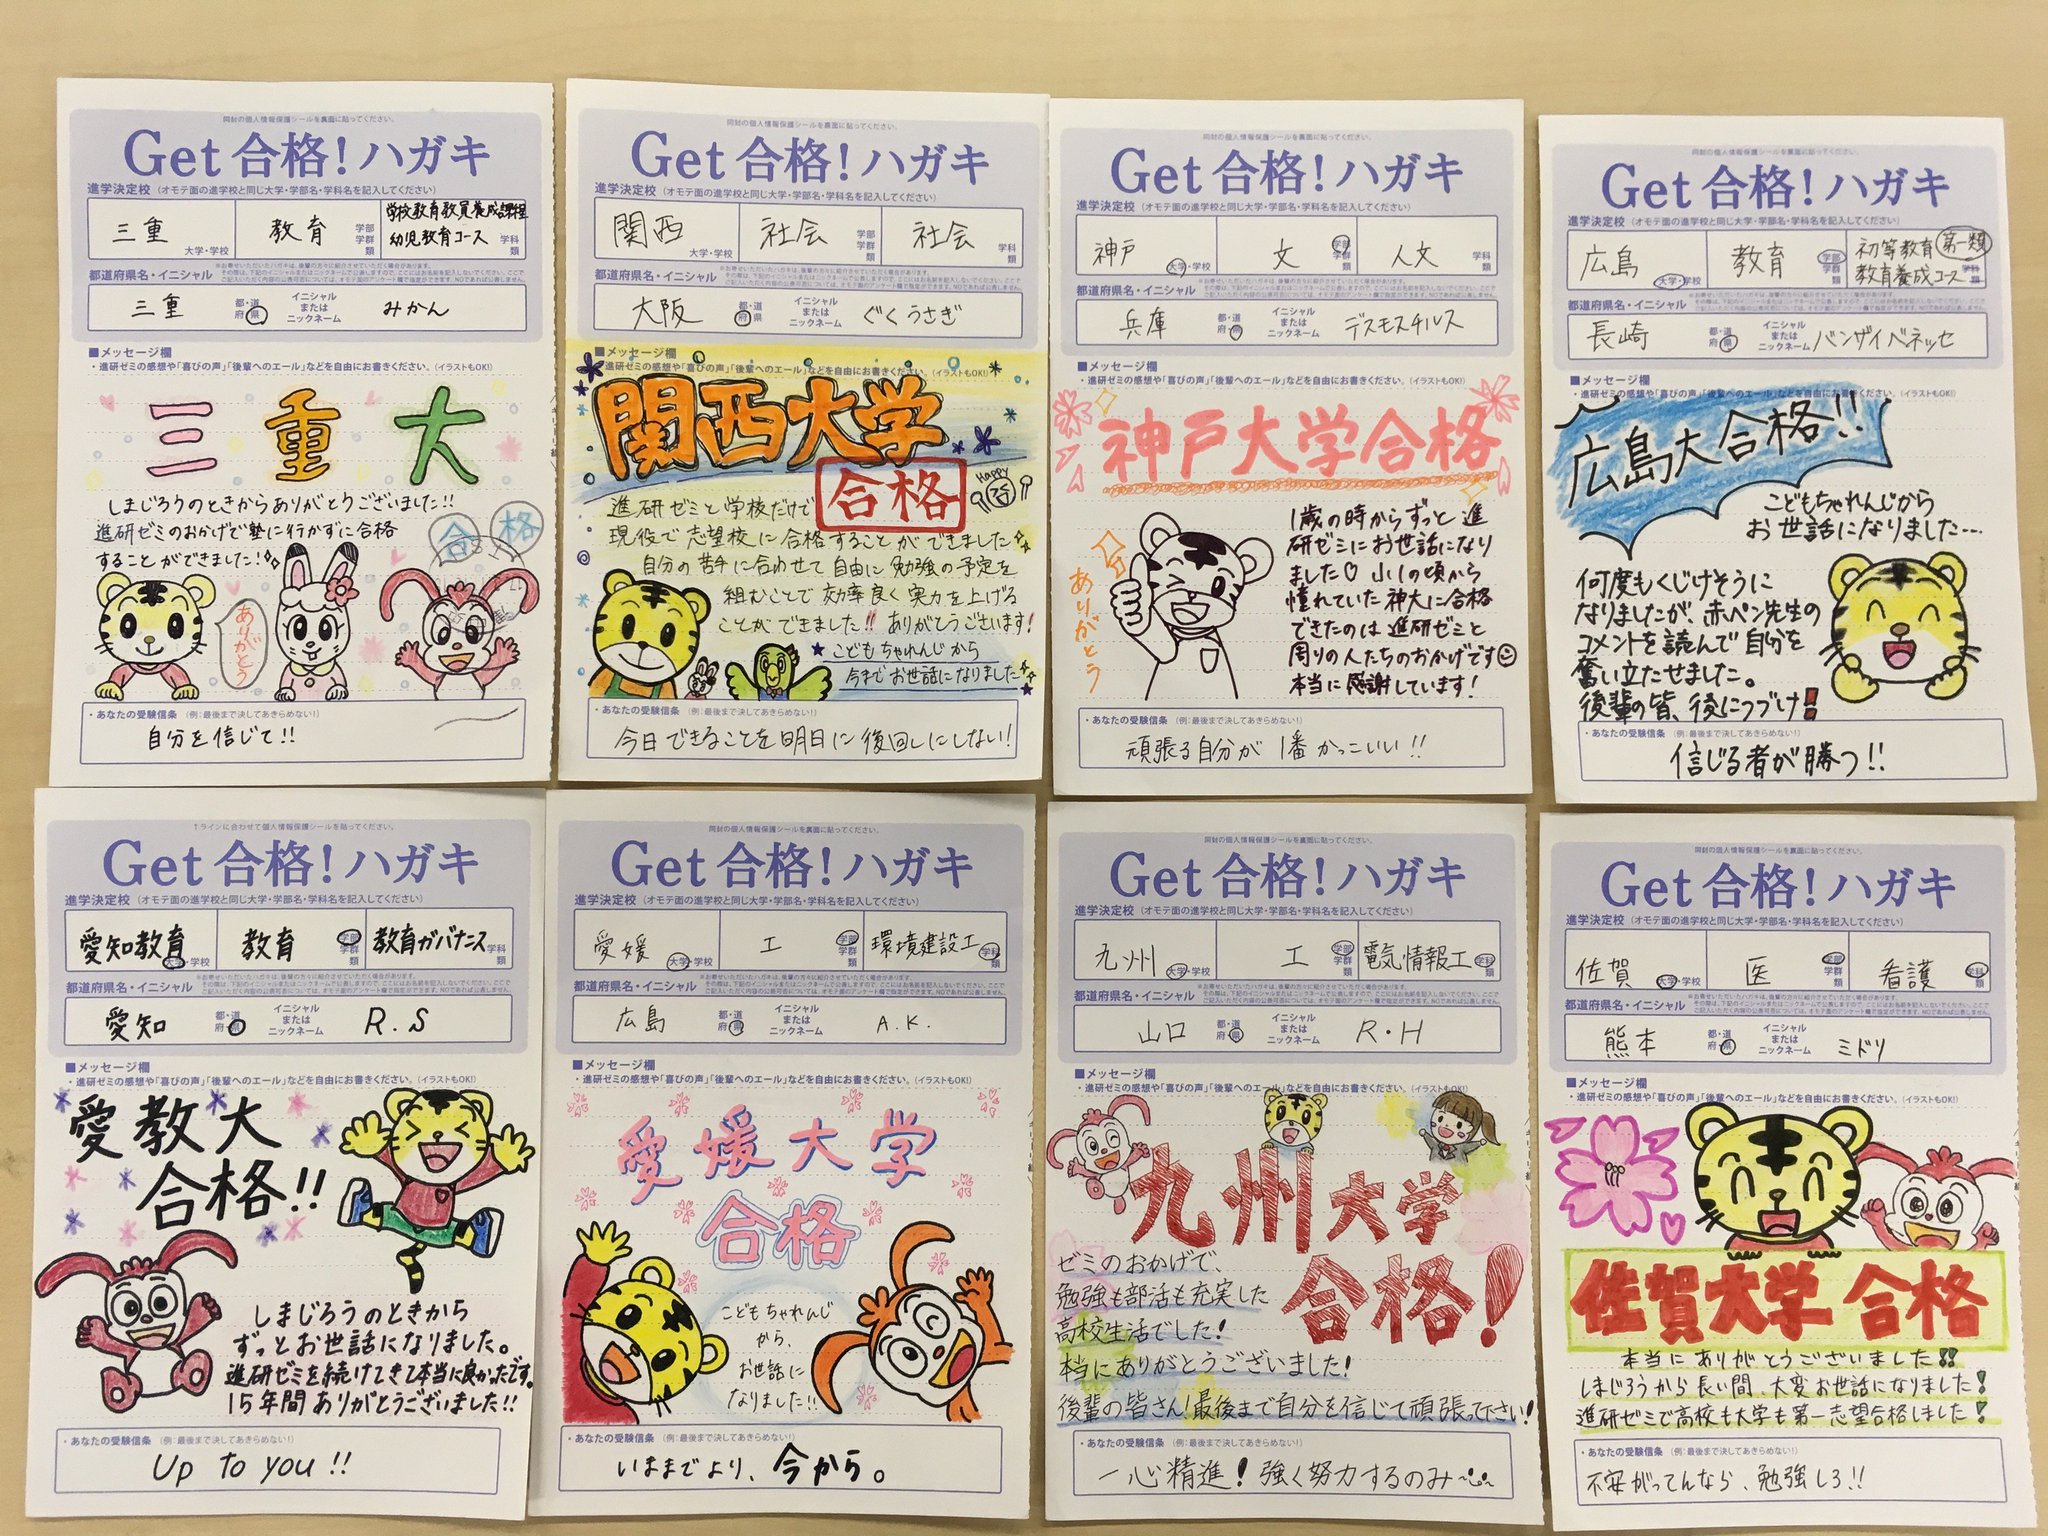 同封の個人情報保護シールを裏面に貼ってください。
Get合格!ハガキ
進学決定校（オモテ面の進学校と同じ大学・学部名・学科名を記入してください）
三重 大学・学校
教育 学部 学群 類
学校教育教員養成課程
幼児教育コース 学科 類
都道府県名・イニシャル
三重 都・道 府・県
イニシャル または ニックネーム みかん
■メッセージ欄
・進研ゼミの感想や「喜びの声」「後輩へのエール」などを自由にお書きください。（イラストもOK!）
三重大
しまじろうのときからありがとうございました!!
進研ゼミのおかげで塾に行かずに合格
することができました!
合格
ありがとう
・あなたの受験信条（例:最後まで決してあきらめない!）
自分を信じて!!
同封の個人情報保護シールを裏面に貼ってください。
Get合格!ハガキ
進学決定校（オモテ面の進学校と同じ大学・学部名・学科名を記入してください）
関西 大学・学校
社会 学部 学群 類
社会 学科 類
都道府県名・イニシャル
大阪 都・道 府・県
イニシャル または ニックネーム ぐくうさぎ
■メッセージ欄
・進研ゼミの感想や「喜びの声」「後輩へのエール」などを自由にお書きください。（イラストもOK!）
関西大学
合格
Happy
進研ゼミと学校だけで
現役で志望校に合格することができました
自分の苦手に合わせて自由に勉強の予定を
組むことで効率良く実力を上げる
ことができました!! ありがとうございます!
こどもちゃれんじから
今までお世話になりました
・あなたの受験信条（例:最後まで決してあきらめない!）
今日できることを明日に後回しにしない!
同封の個人情報保護シールを裏面に貼ってください。
Get合格!ハガキ
進学決定校（オモテ面の進学校と同じ大学・学部名・学科名を記入してください）
神戸 大学・学校
文 学部 学群 類
人文 学科 類
都道府県名・イニシャル
兵庫 都・道 府・県
イニシャル または ニックネーム デスモスチルス
■メッセージ欄
・進研ゼミの感想や「喜びの声」「後輩へのエール」などを自由にお書きください。（イラストもOK!）
神戸大学合格
ありがとう
1歳の時からずっと進
研ゼミにお世話になり
ました♡ 小1の頃から
憧れていた神大に合格
できたのは進研ゼミと
周りの人たちのおかげです
本当に感謝しています!
・あなたの受験信条（例:最後まで決してあきらめない!）
頑張る自分が1番かっこいい!!
同封の個人情報保護シールを裏面に貼ってください。
Get合格!ハガキ
進学決定校（オモテ面の進学校と同じ大学・学部名・学科名を記入してください）
広島 大学・学校
教育 学部 学群 類
初等教育 第一類
教育養成コース 学科 類
都道府県名・イニシャル
長崎 都・道 府・県
イニシャル または ニックネーム バンザイベネッセ
■メッセージ欄
・進研ゼミの感想や「喜びの声」「後輩へのエール」などを自由にお書きください。（イラストもOK!）
広島大合格!!
こどもちゃれんじから
お世話になりました…
何度もくじけそうに
なりましたが、赤ペン先生の
コメントを読んで自分を
奮い立たせました。
後輩の皆、後につづけ!
・あなたの受験信条（例:最後まで決してあきらめない!）
信じる者が勝つ!!
↑ラインに合わせて個人情報保護シールを貼ってください。
Get合格!ハガキ
進学決定校（オモテ面の進学校と同じ大学・学部名・学科名を記入してください）
愛知教育 大学・学校
教育 学部 学群 類
教育ガバナンス 学科 類
都道府県名・イニシャル
愛知 都・道 府・県
イニシャル または ニックネーム R.S
■メッセージ欄
・進研ゼミの感想や「喜びの声」「後輩へのエール」などを自由にお書きください。（イラストもOK!）
愛教大
合格!!
しまじろうのときから
ずっとお世話になりました。
進研ゼミを続けてきて本当に良かったです。
15年間ありがとうございました!!
・あなたの受験信条（例:最後まで決してあきらめない!）
Up to you!!
同封の個人情報保護シールを裏面に貼ってください。
Get合格!ハガキ
進学決定校（オモテ面の進学校と同じ大学・学部名・学科名を記入してください）
愛媛 大学・学校
工 学部 学群 類
環境建設工 学科 類
都道府県名・イニシャル
広島 都・道 府・県
イニシャル または ニックネーム A.K.
■メッセージ欄
・進研ゼミの感想や「喜びの声」「後輩へのエール」などを自由にお書きください。（イラストもOK!）
愛媛大学
合格
こどもちゃれんじ
から、
お世話に
なりました!!
・あなたの受験信条（例:最後まで決してあきらめない!）
いままでより、今から。
同封の個人情報保護シールを裏面に貼ってください。
Get合格!ハガキ
進学決定校（オモテ面の進学校と同じ大学・学部名・学科名を記入してください）
九州 大学・学校
工 学部 学群 類
電気情報工 学科 類
都道府県名・イニシャル
山口 都・道 府・県
イニシャル または ニックネーム R・H
■メッセージ欄
・進研ゼミの感想や「喜びの声」「後輩へのエール」などを自由にお書きください。（イラストもOK!）
九州大学
合格!
ゼミのおかげで、
勉強も部活も充実した
高校生活でした!
本当にありがとうございました!
後輩の皆さん!最後まで自分を信じて頑張って下さい!
・あなたの受験信条（例:最後まで決してあきらめない!）
一心精進! 強く努力するのみ
同封の個人情報保護シールを裏面に貼ってください。
Get合格!ハガキ
進学決定校（オモテ面の進学校と同じ大学・学部名・学科名を記入してください）
佐賀 大学・学校
医 学部 学群 類
看護 学科 類
都道府県名・イニシャル
熊本 都・道 府・県
イニシャル または ニックネーム ミドリ
■メッセージ欄
・進研ゼミの感想や「喜びの声」「後輩へのエール」などを自由にお書きください。（イラストもOK!）
佐賀大学 合格
本当にありがとうございました!!
しまじろうから長い間、大変お世話になりました!
進研ゼミで高校も大学も第一志望合格しました!
・あなたの受験信条（例:最後まで決してあきらめない!）
不安がってんなら、勉強しろ!!